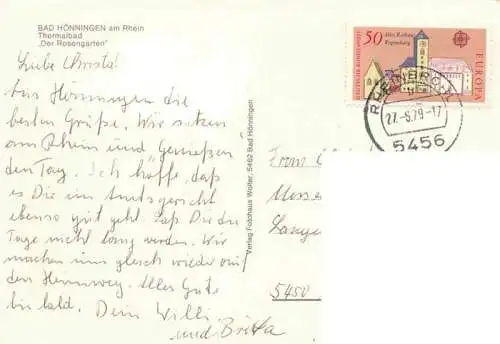 BAD HÖNNINGEN am Rhein
Thermalbad
„Der Rosengarten"
Liebe Christa!
Aus Hönningen die
besten Grüße. Wir sitzen
am Rhein und genießen
den Tag. Ich hoffe, daß
es Dir im Amtsgericht
ebenso gut geht. Laß Dir die
Tage nicht lang werden. Wir
machen uns gleich wieder auf
den Heimweg. Alles Gute
bis bald. Dein Willi
und Britta
Verlag Fotohaus Wolter, 5462 Bad Hönningen
50
Altes Rathaus
Regensburg
DEUTSCHE BUNDESPOST
EUROPA
RHEINBROHL
27.-6.79-17
5456
5450